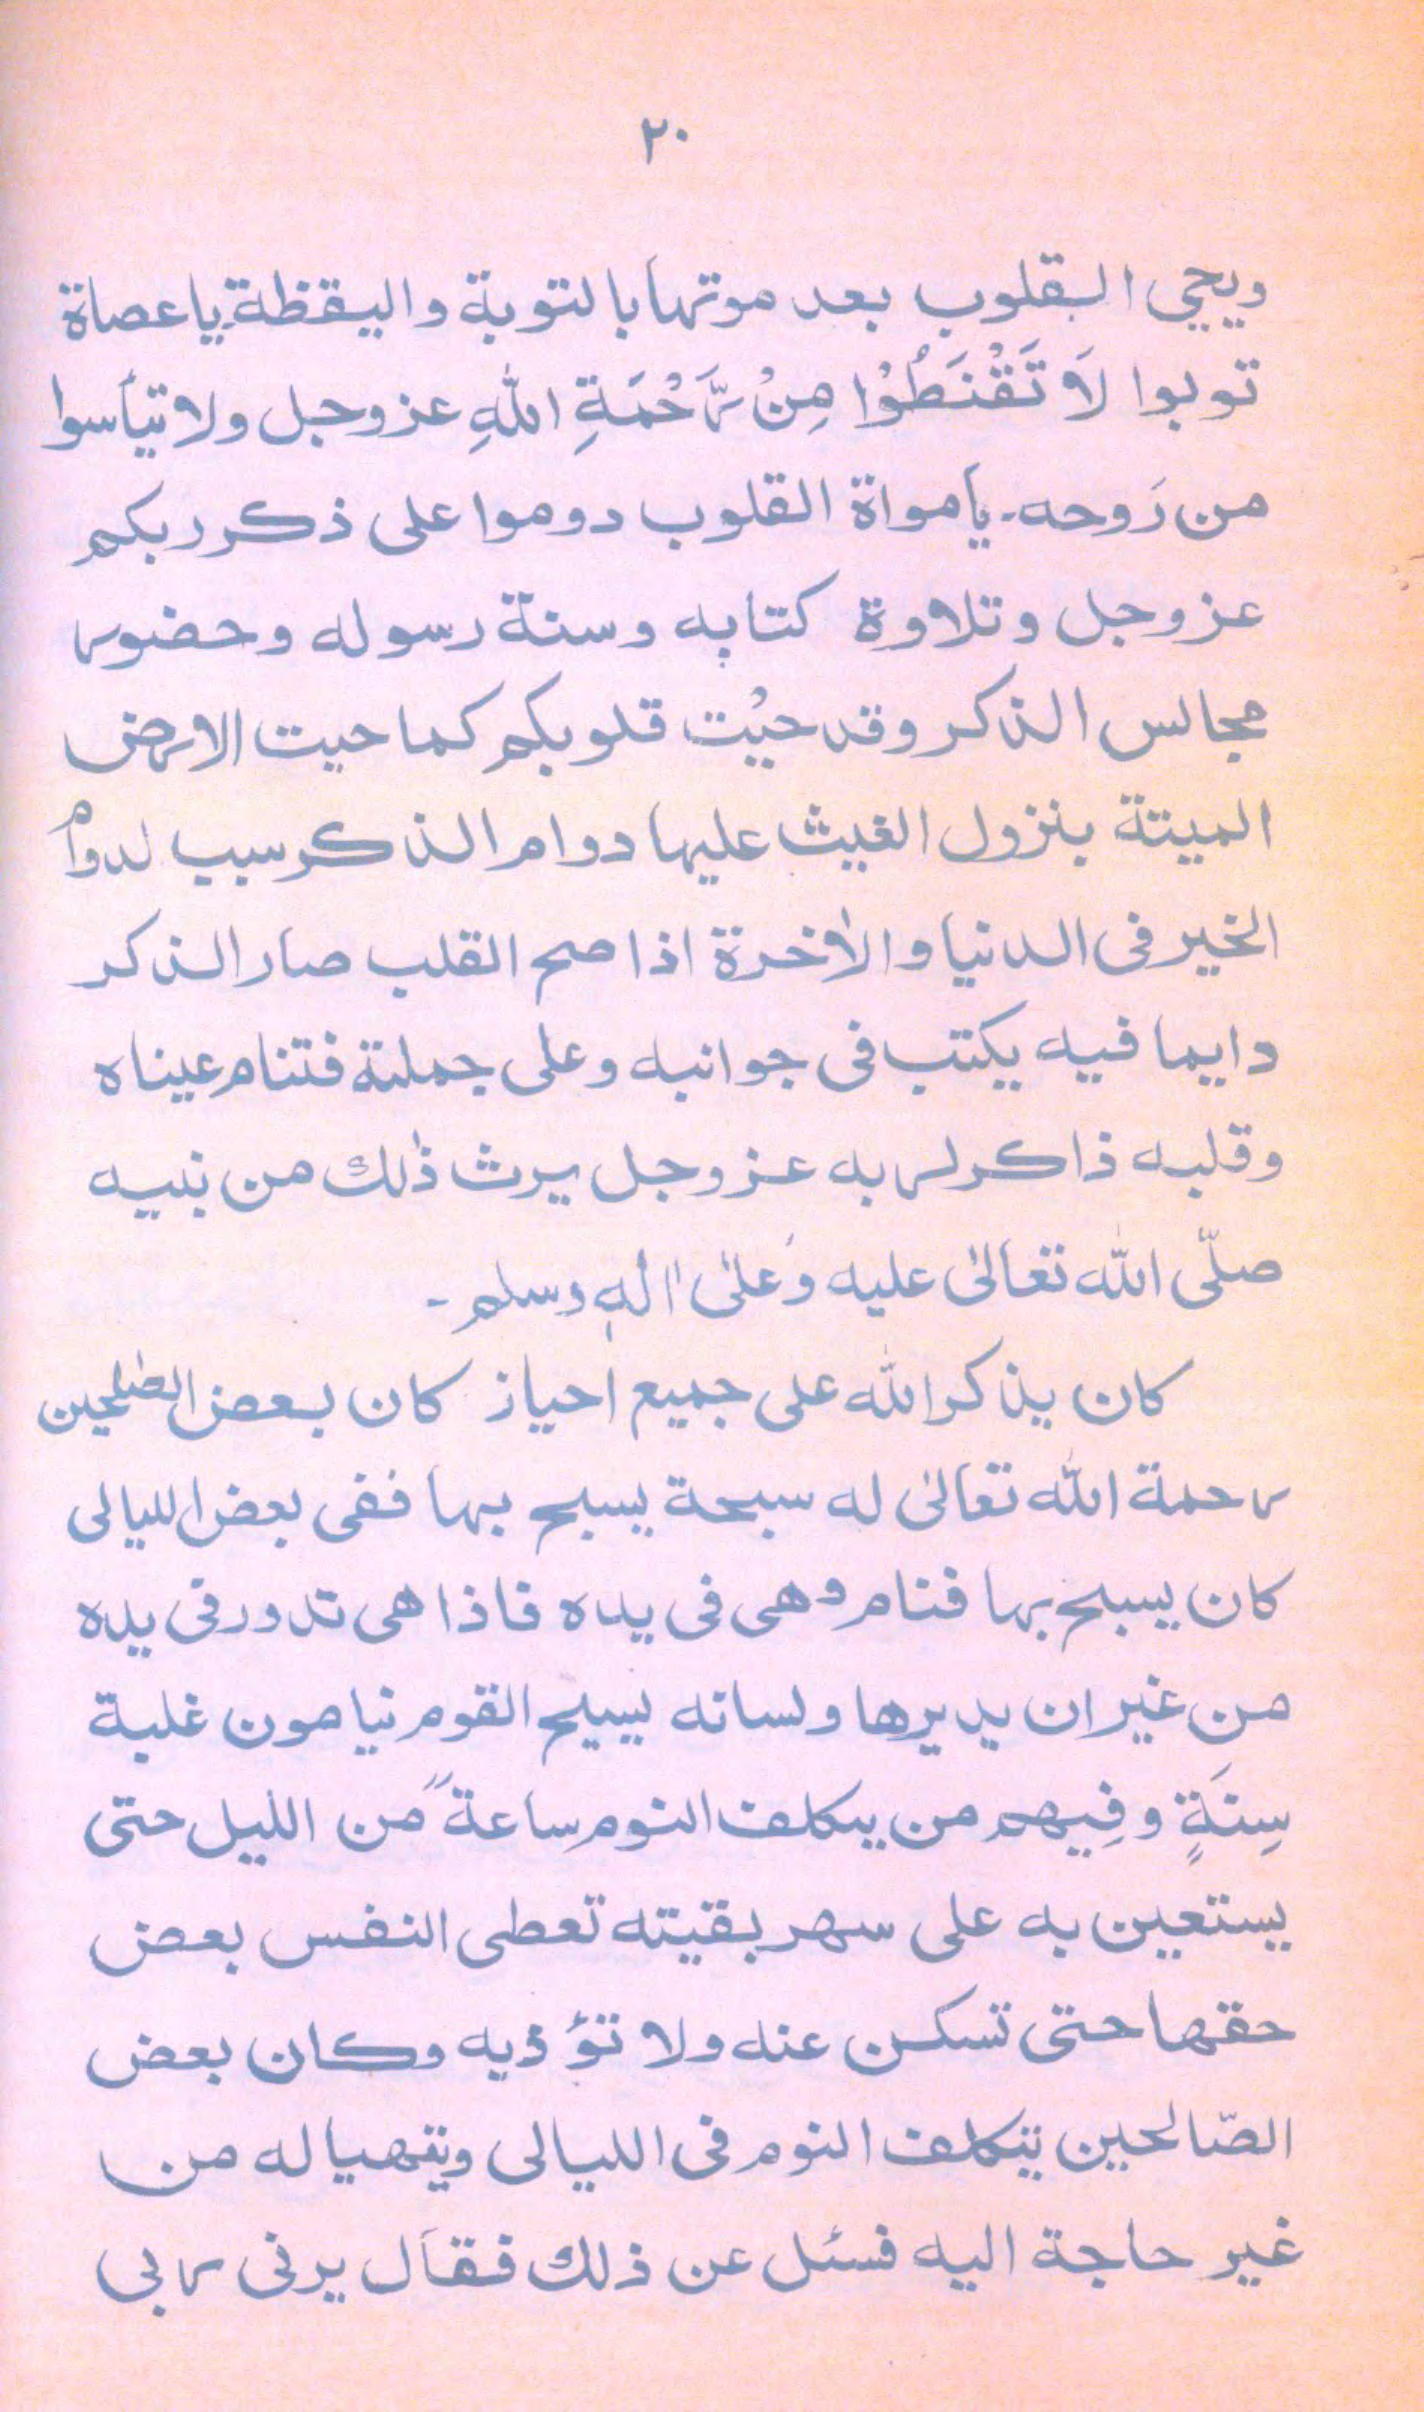 ٢٠
ويحيي القلوب بعد موتها بالتوبة واليقظة ياعصاة
توبوا لَا تَقْنَطُوْا مِنْ رَّحْمَةِ اللّٰهِ عزوجل ولا تيأسوا
من رَوحه۔ يامواة القلوب دوموا على ذكر ربكم
عزوجل وتلاوة كتابه وسنة رسوله وحضور
مجالس الذكر وقد حيْت قلوبكم كما حيت الارض
الميتة بنزول الغيث عليها دوام الذكر سبب لدوام
الخير فى الدنيا والاٰخرة اذا صح القلب صار الذكر
دايما فيه يكتب فى جوانبه وعلى جملته فتنام عيناه
وقلبه ذاكر لربه عزوجل يرث ذٰلك من نبيه
صلّى اللّٰه تعالىٰ عليه وَعلىٰ اٰلهٖ وسلم۔
كان يذكر اللّٰه على جميع احياز كان بعض الصّٰلحين
رحمة اللّٰه تعالىٰ له سبحة يسبح بها ففى بعض الليالى
كان يسبح بها فنام وهى فى يده فاذا هى تدور فى يده
من غير ان يديرها ولسانه يسبح القوم نيامون غلبة
سِنَةٍ وفِيهم من يتكلف النوم ساعةً من الليل حتى
يستعين به على سهر بقيته تعطى النفس بعض
حقها حتى تسكن عنه ولا تؤذيه وكان بعض
الصّالحين يتكلف النوم فى الليالى ويتهيا له من
غير حاجة اليه فسئل عن ذلك فقال يرنى ربى